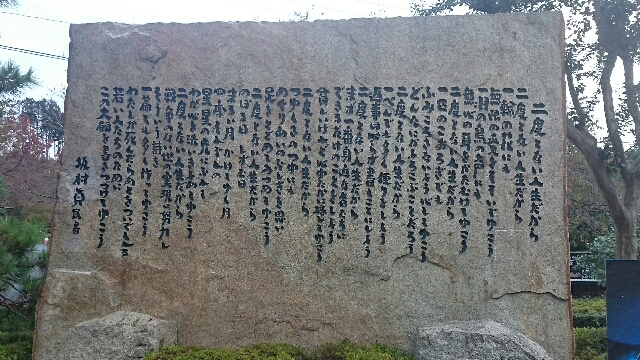 二度とない人生だから
二度とない人生だから
一輪の花にも
無限の愛をそそいでゆこう
一羽の鳥の声にも
無心の耳をかたむけてゆこう
二度とない人生だから
一匹のこおろぎでも
ふみころさないように心してゆこう
どんなにかよろこぶことだろう
二度とない人生だから
一ぺんでも多く便りをしよう
返事は必ず書くことにしよう
二度とない人生だから
まず一番身近な者たちに
できるだけのことをしよう
貧しいけれど心ゆたかに接してゆこう
二度とない人生だから
つゆくさのつゆにも
めぐりあいのふしぎを思い
足をとどめてみつめてゆこう
二度とない人生だから
のぼる日 しずむ日
まるい月 かけてゆく月
四季それぞれの
星星の光にふれて
わが心を洗いきよめてゆこう
二度とない人生だから
戦争のない世の実現に努力し
そういう詩を
一篇でも多く作ってゆこう
わたしが死んだらあとをついでくれる
若い人たちのために
この大願を書きつづけてゆこう
坂村真民